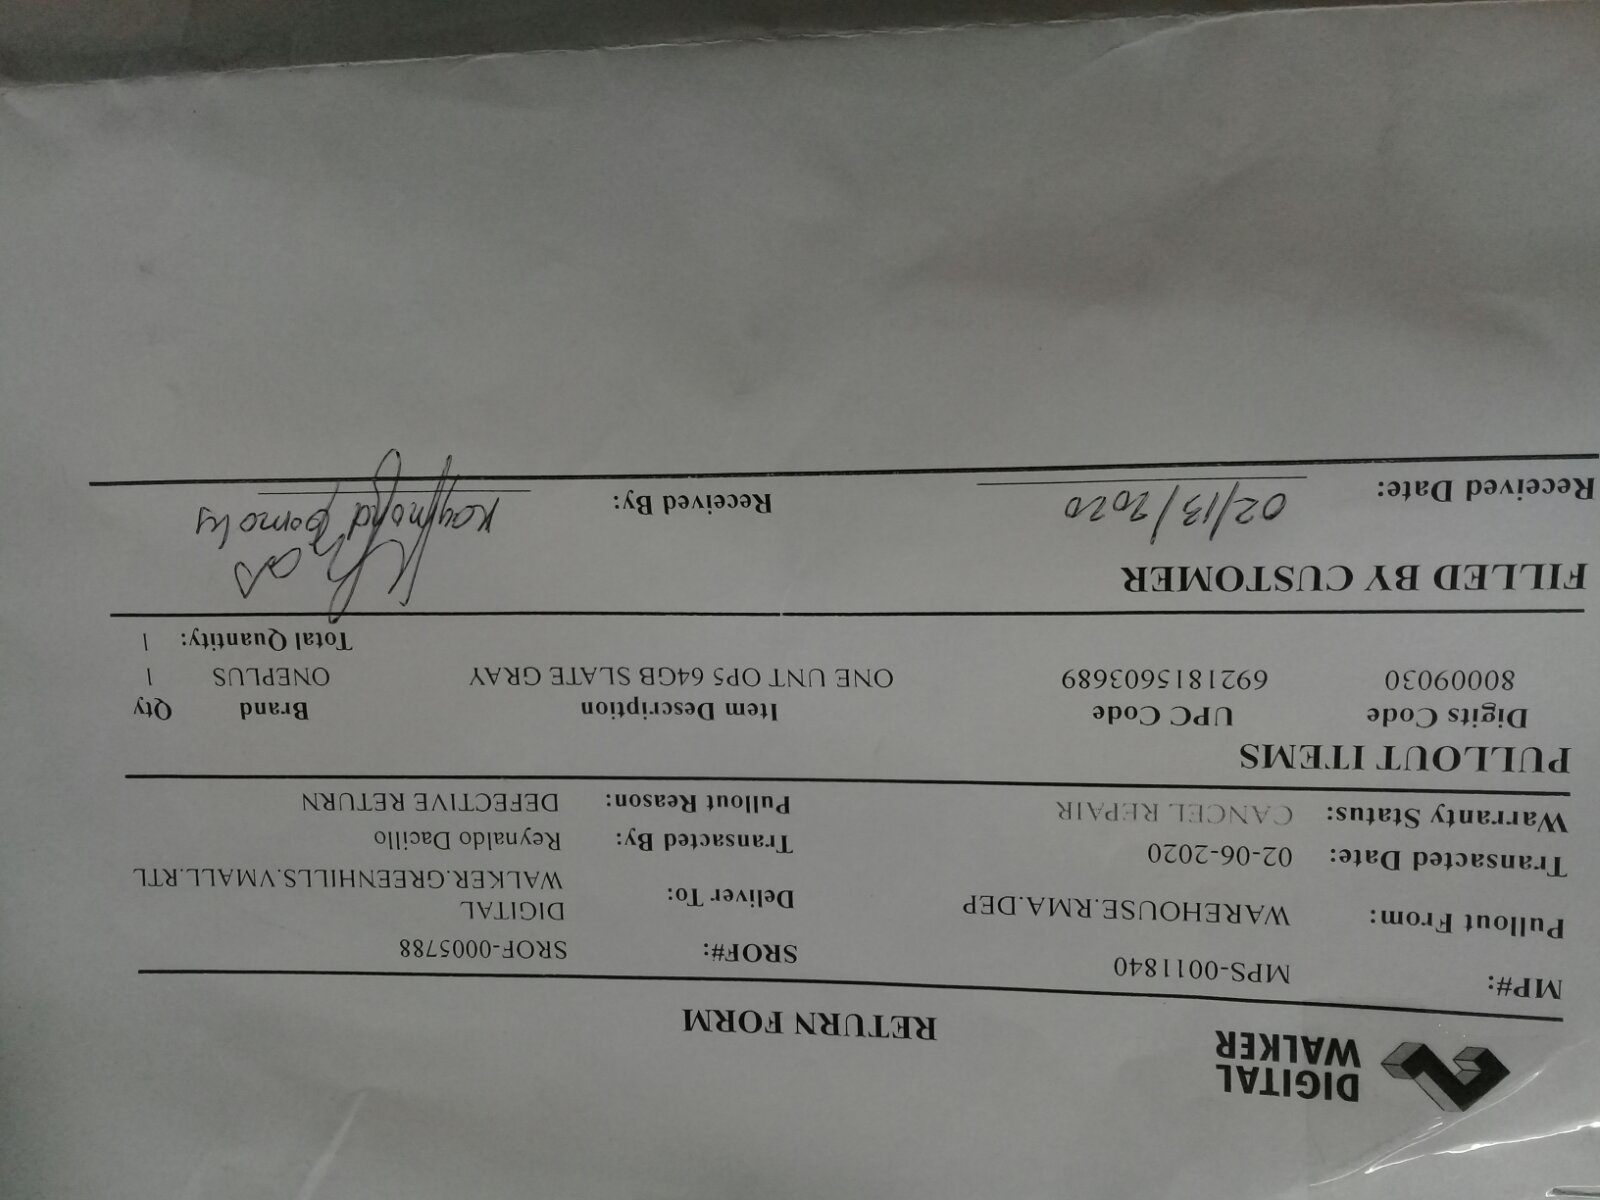 DIGITAL
WALKER
RETURN FORM
MP#: MPS-0011840 SROF#: SROF-0005788
Pullout From: WAREHOUSE.RMA.DEP Deliver To: DIGITAL
WALKER.GREENHILLS.VMALL.RTL
Transacted Date: 02-06-2020 Transacted By: Reynaldo Dacillo
Warranty Status: CANCEL REPAIR Pullout Reason: DEFECTIVE RETURN
PULLOUT ITEMS
Digits Code UPC Code Item Description Brand Qty
80009030 6921815603689 ONE UNT OP5 64GB SLATE GRAY ONEPLUS 1
Total Quantity: 1
FILLED BY CUSTOMER
Received Date: 02/13/2020 Received By: Raymond